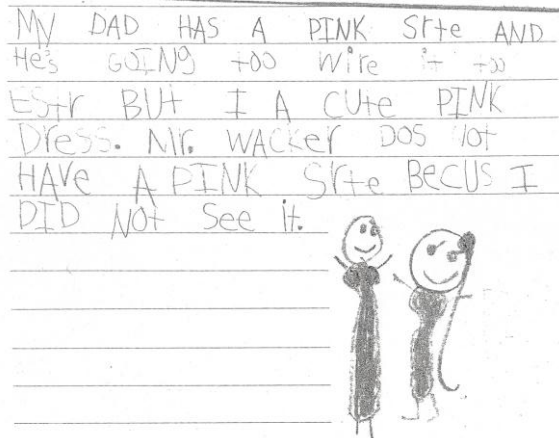 MY DAD HAS A PINK Srte AND
He's GOING too Wire it too
EStr BUt I A CUte PINK
Dress. Mr. WACKer DOS not
HAVe A PINK Srte BeCUS I
DID Not See it.